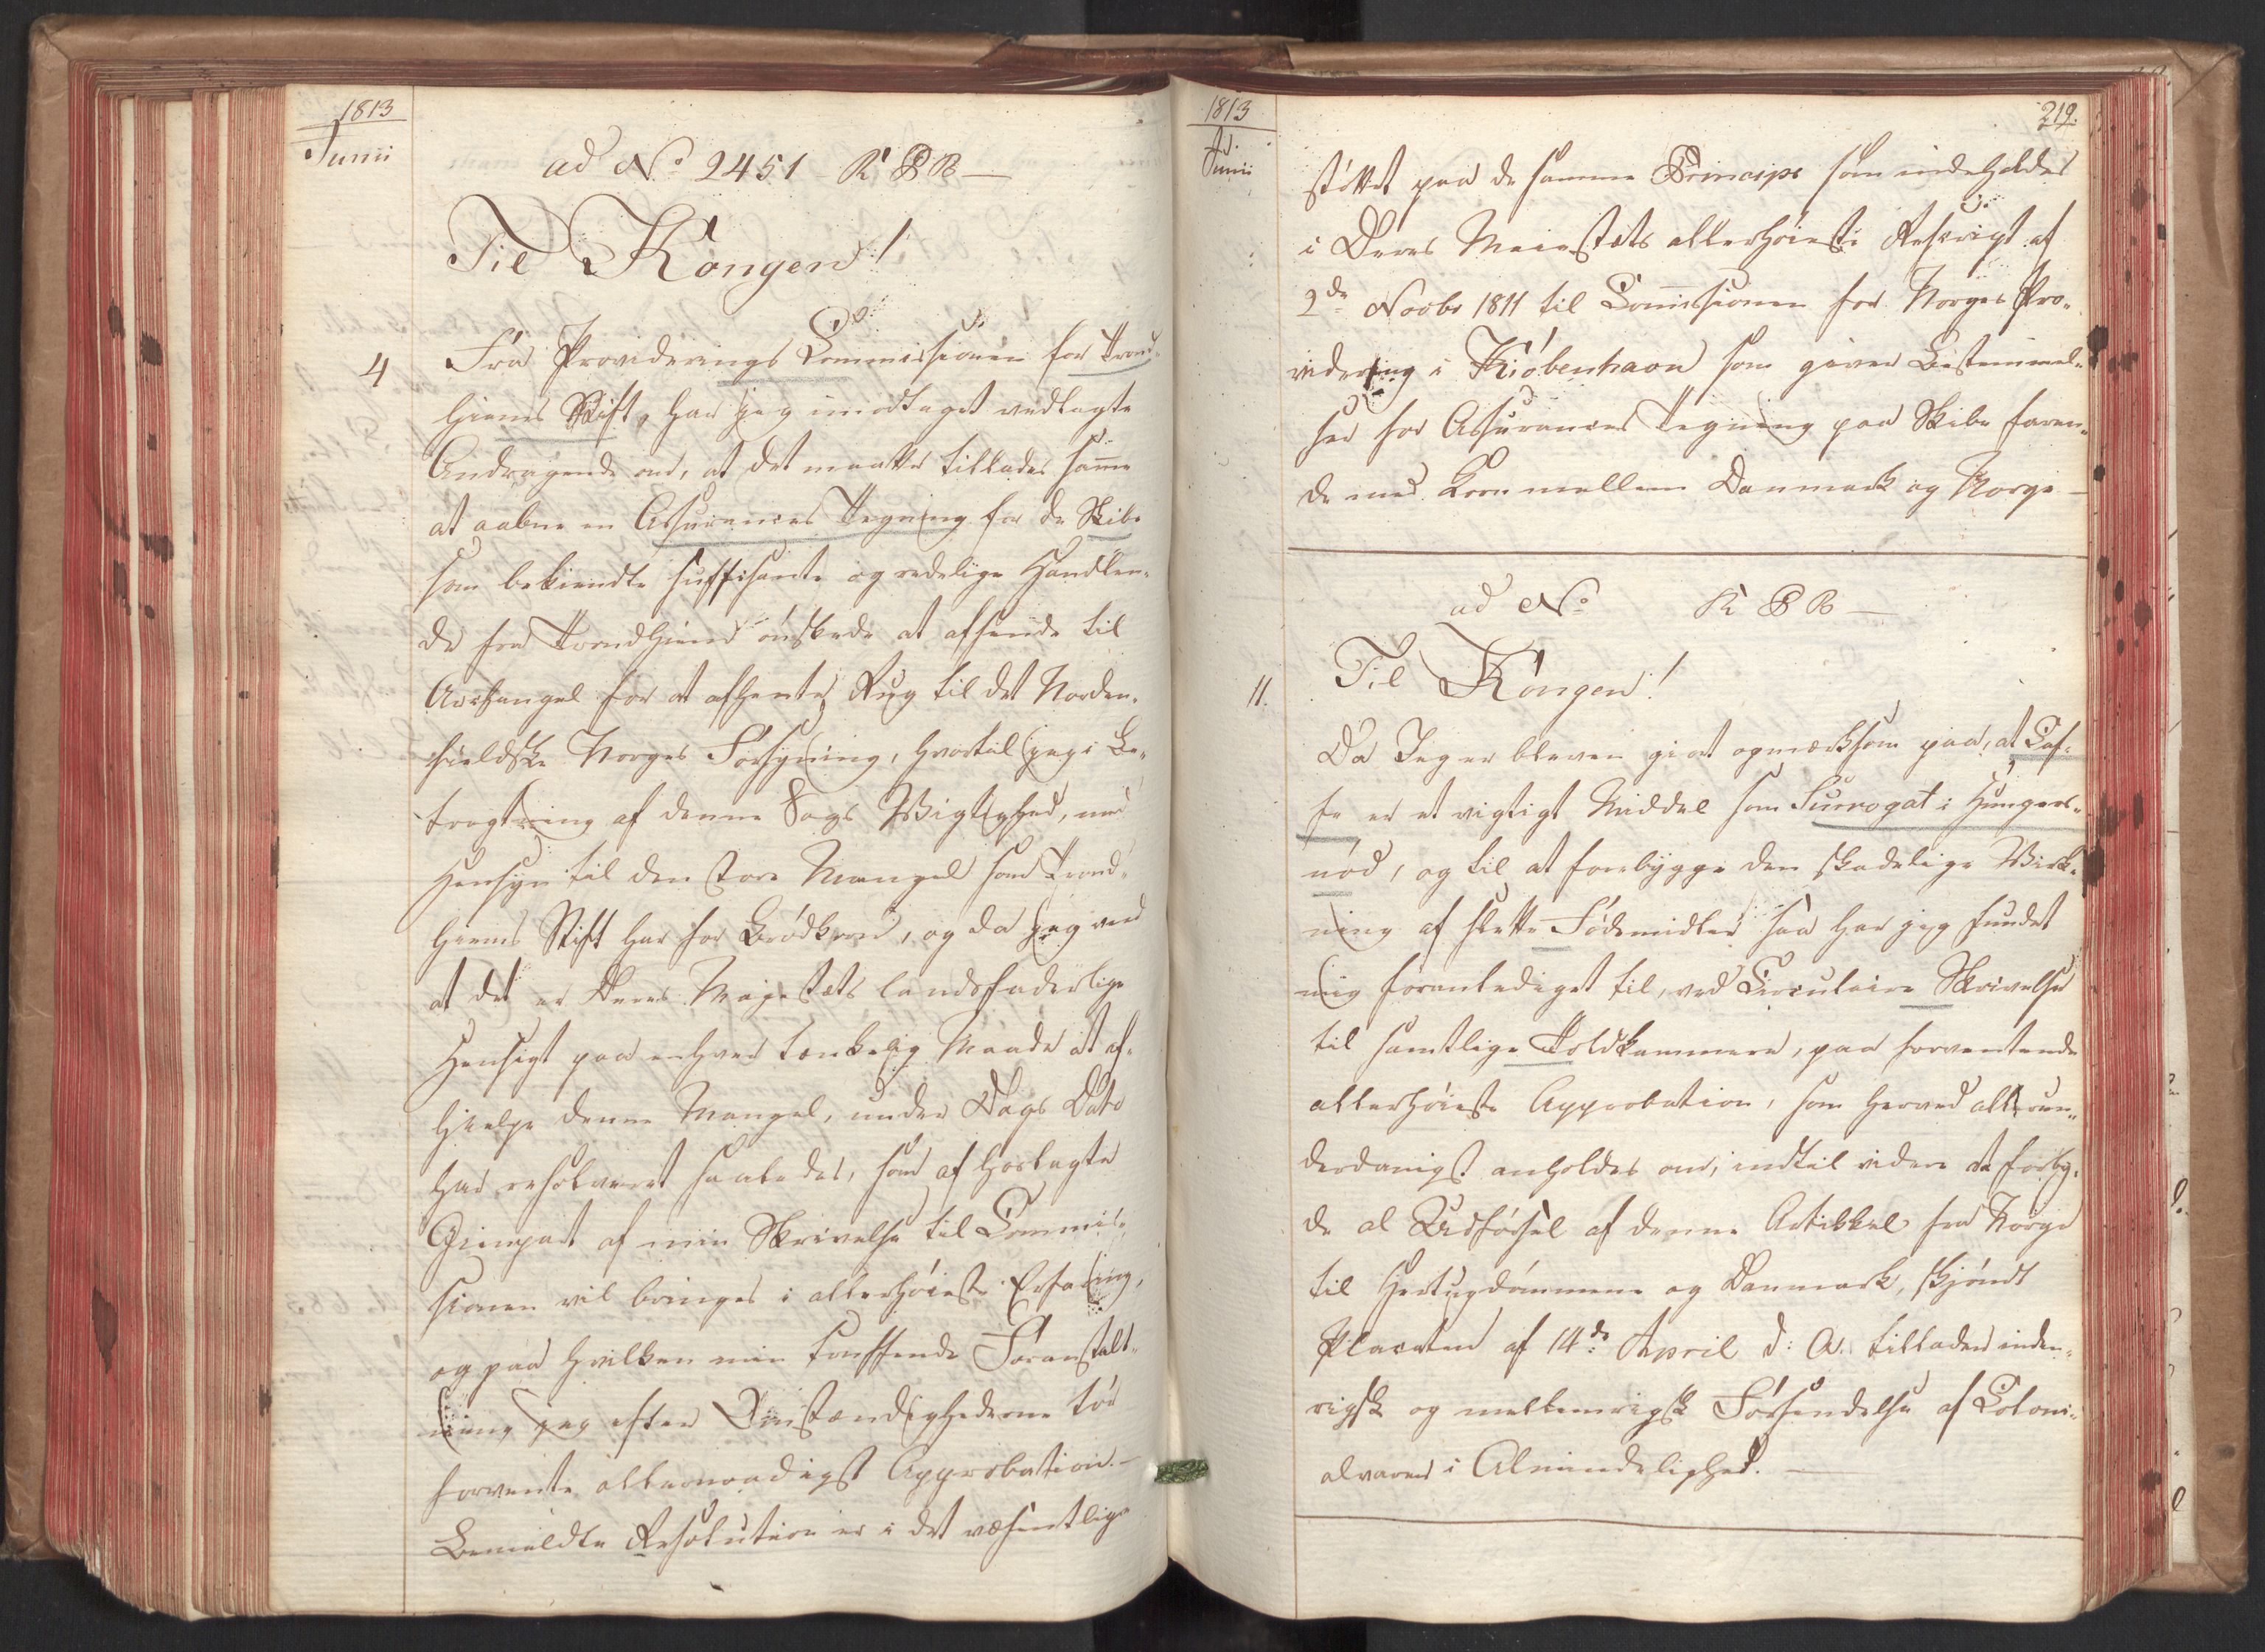 1813
Junii
ad No 2451 K P B —
Til Kongen!
4
Fra Providerings Commissionen for Trond„
hiems Stift, har jeg imodtaget vedlagte
Andragende om, at det maatte tillades samme
at aabne en Assurances Tegning for de Skibe
som bekiendte suffisante og redelige Handlen„
de fra Trondhiem önskede at afsende til
Archangel for at afhente Rug til det Norden„
fieldske Norges Forsyning, hvortil jeg i Be„
tragtning af denne Sags Vigtighed, med
Hensyn til den store Mangel som Trond„
hiems Stift har for Brödkorn, og da jeg veed
at det er Deres Majestæts landsfaderlige
Hensigt paa enhver tænkelig Maade at af„
hielpe denne Mangel, under Dags Dato
har resolveret saaledes, som af hoslagte
Gienpart af min Skrivelse til Commis„
sionen vil bringes i allerhöieste Erfaring,
og paa hvilken min truffende Foranstalt„
ning jeg efter Omstændighederne tör
forvente allernaadigst Approbation. —
Bemeldte Resolution er i det væsentlige
1813
Jd.
Junii
219.
stöttet paa de samme Principe som indeholdes
i Deres Majestæts allerhöieste Rescript af
2de Novbr 1811 til Commissionen for Norges Pro„
videring i Kiöbenhavn som giver Bestemmel„
ser for Assurances Tegning paa Skibe faren„
de med Korn mellem Danmark og Norge —
ad No K P B —
Til Kongen!
11.
Da Jeg er bleven giort opmærksom paa, at Caf„
fe er et vigtigt Middel som Surrogat i Hungers„
nöd, og til at forebygge den skadelige Virk„
ning af slette Födemidler saa har jeg fundet
mig foranlediget til, ved Circulaire Skrivelse
til samtlige Toldkammere, paa forventende
allerhöieste Approbation, som herved allerun„
derdanigst anholdes om, indtil videre at forby„
de al Udförsel af denne Artikkel fra Norge
til Hertugdömmene og Danmark, skjöndt
Placaten af 14de April d: A. tillader inden„
rigsk og mellemrigsk Forsendelse af Coloni„
alvarer i Almindelighed. —